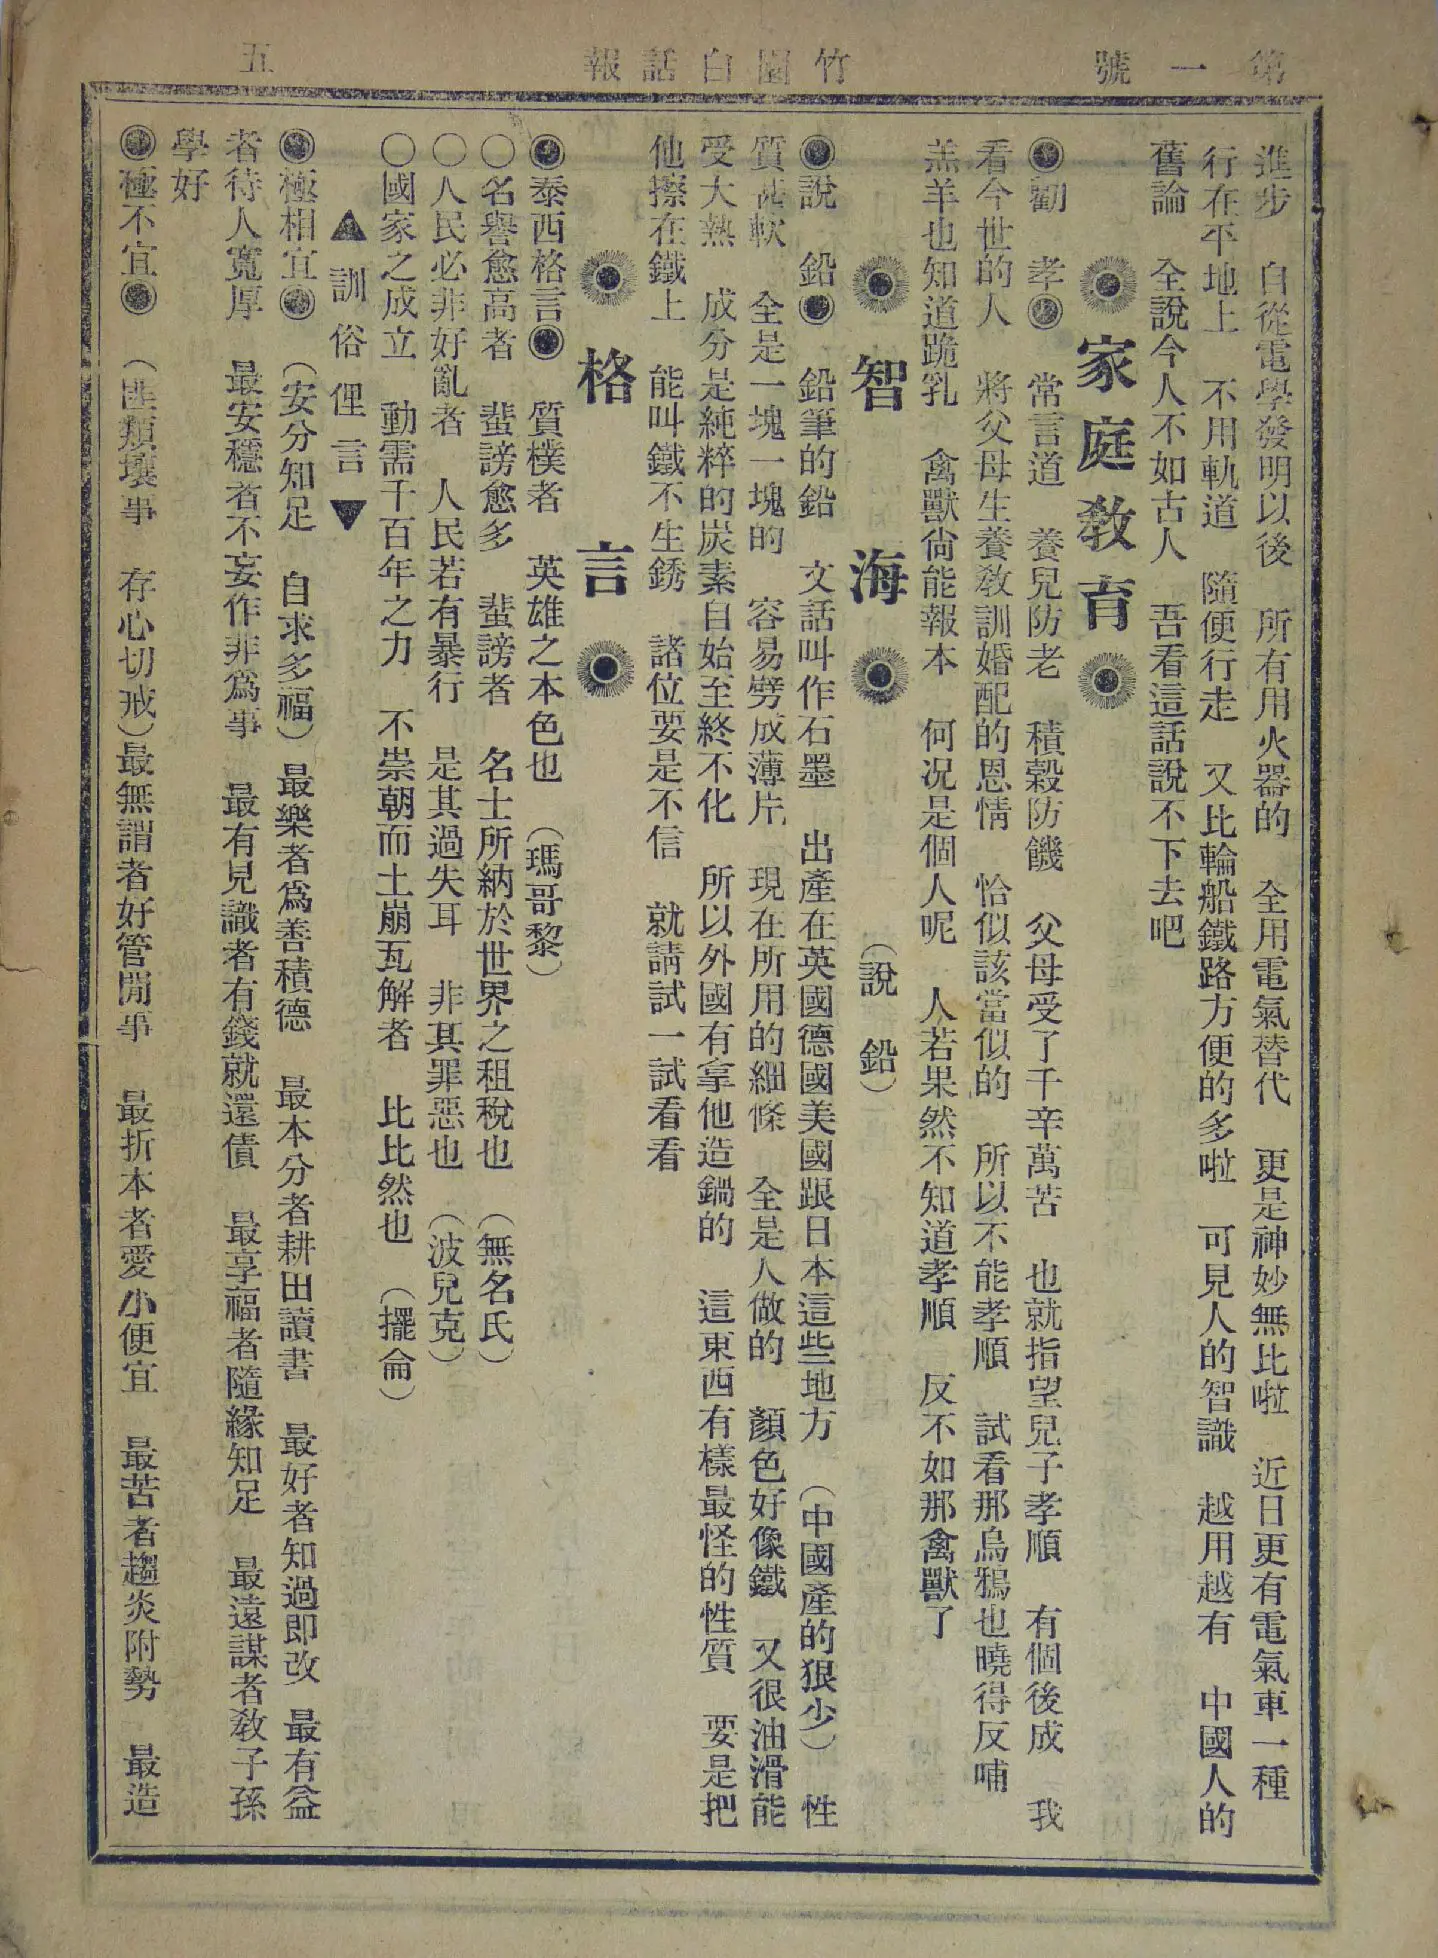 第一號
竹園白話報
五
進步　自從電學發明以後　所有用火器的　全用電氣替代　更是神妙無比啦　近日更有電氣車一種
行在平地上　不用軌道　隨便行走　又比輪船鐵路方便的多啦　可見人的智識　越用越有　中國人的
舊論　全說今人不如古人　吾看這話說不下去吧
家庭教育
◉勸　孝◉　常言道　養兒防老　積穀防饑　父母受了千辛萬苦　也就指望兒子孝順　有個後成　我
看今世的人　將父母生養教訓婚配的恩情　恰似該當似的　所以不能孝順　試看那烏鴉也曉得反哺
羔羊也知道跪乳　禽獸尙能報本　何况是個人呢　人若果然不知道孝順　反不如那禽獸了
智海　（說　鉛）
◉說　鉛◉　鉛筆的鉛　文話叫作石墨　出產在英國德國美國跟日本這些地方　（中國產的狠少）　性
質甚軟　全是一塊一塊的　容易劈成薄片　現在所用的細條　全是人做的　顏色好像鐵　又很油滑能
受大熱　成分是純粹的炭素自始至終不化　所以外國有拿他造鍋的　這東西有樣最怪的性質　要是把
他擦在鐵上　能叫鐵不生銹　諸位要是不信　就請試一試看看
格言
◉泰西格言◉　質樸者　英雄之本色也　（瑪哥黎）
〇名譽愈高者　蜚謗愈多　蜚謗者　名士所納於世界之租稅也　（無名氏）
〇人民必非好亂者　人民若有暴行　是其過失耳　非其罪惡也　（波兒克）
〇國家之成立　動需千百年之力　不崇朝而土崩瓦解者　比比然也　（擺侖）
▲訓俗俚言▼
◉極相宜◉　（安分知足　自求多福）最樂者爲善積德　最本分者耕田讀書　最好者知過即改　最有益
者待人寬厚　最安穩者不妄作非爲事　最有見識者有錢就還債　最享福者隨緣知足　最遠謀者教子孫
學好
◉極不宜◉　（匪類壞事　存心切戒）最無謂者好管閒事　最折本者愛小便宜　最苦者趨炎附勢　最造